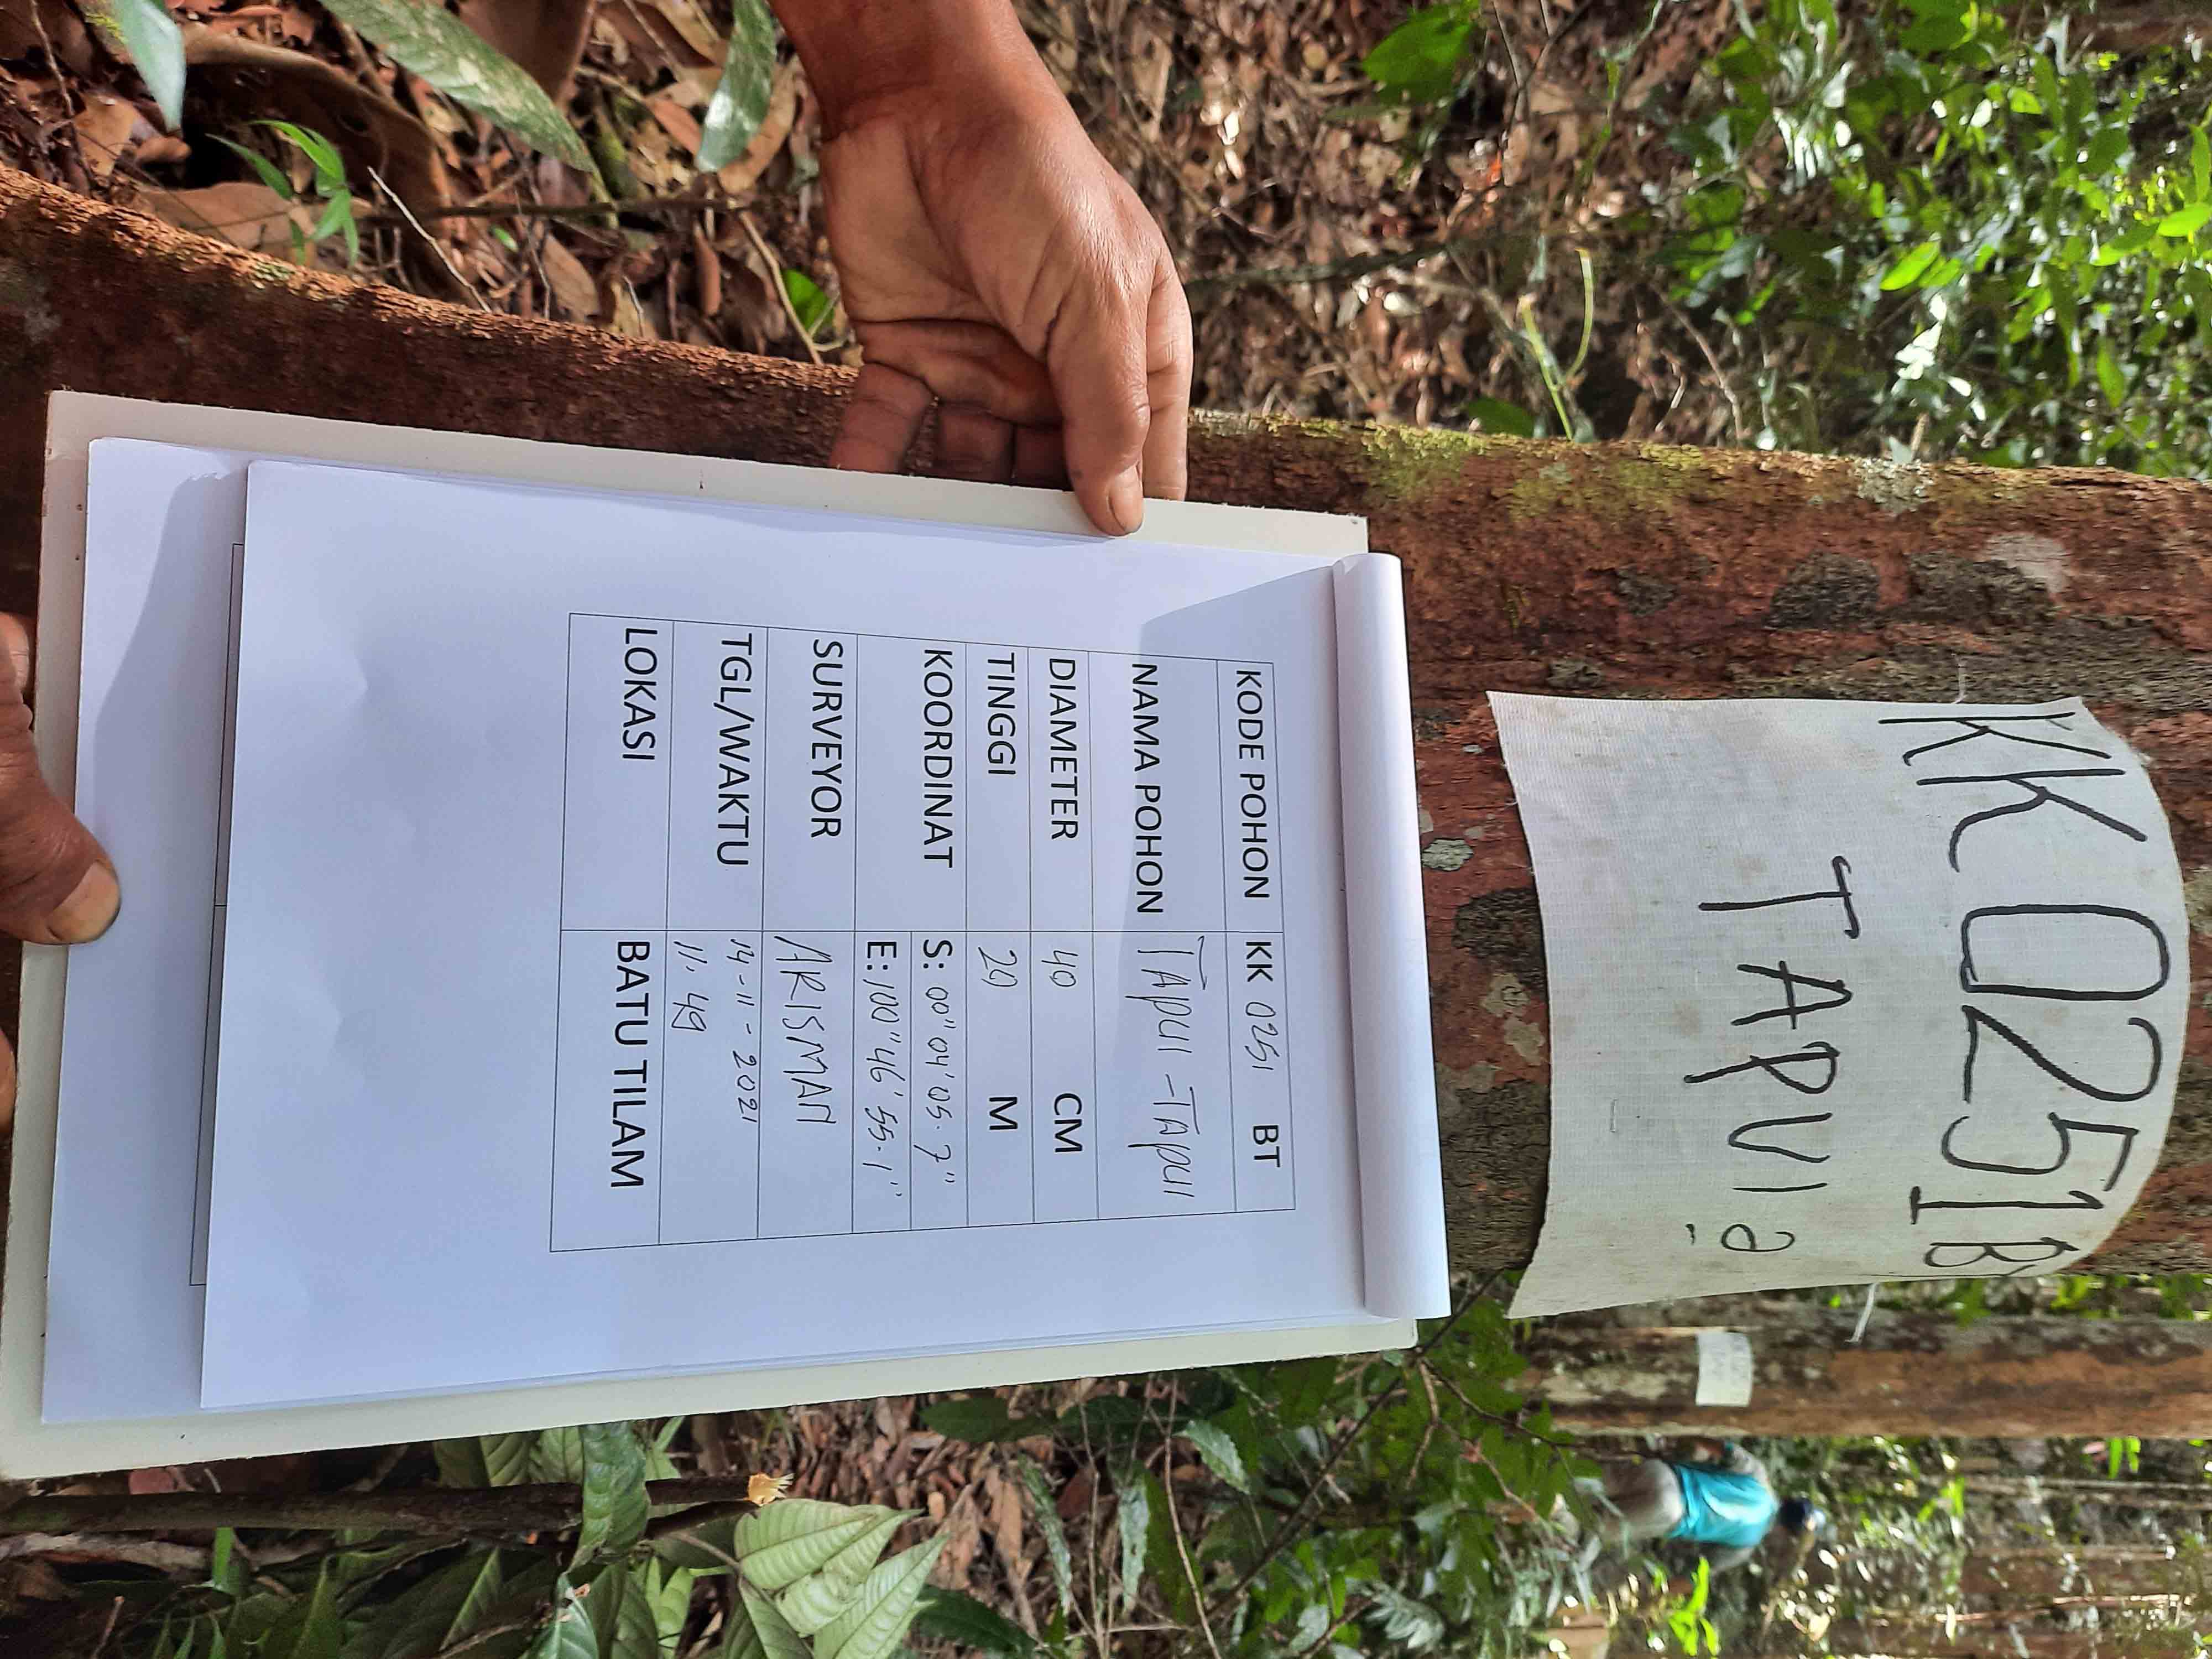 KK0251B
TAPUI 2
KODE POHON KK 0251 BT
NAMA POHON TAPUI - TAPUI
DIAMETER 40 CM
TINGGI 20 M
KOORDINAT S: 00" 04' 05.7"
E: 100" 46' 55.1"
SURVEYOR ARISMAN
TGL/WAKTU 14 - 11 - 2021
11.49
LOKASI BATU TILAM